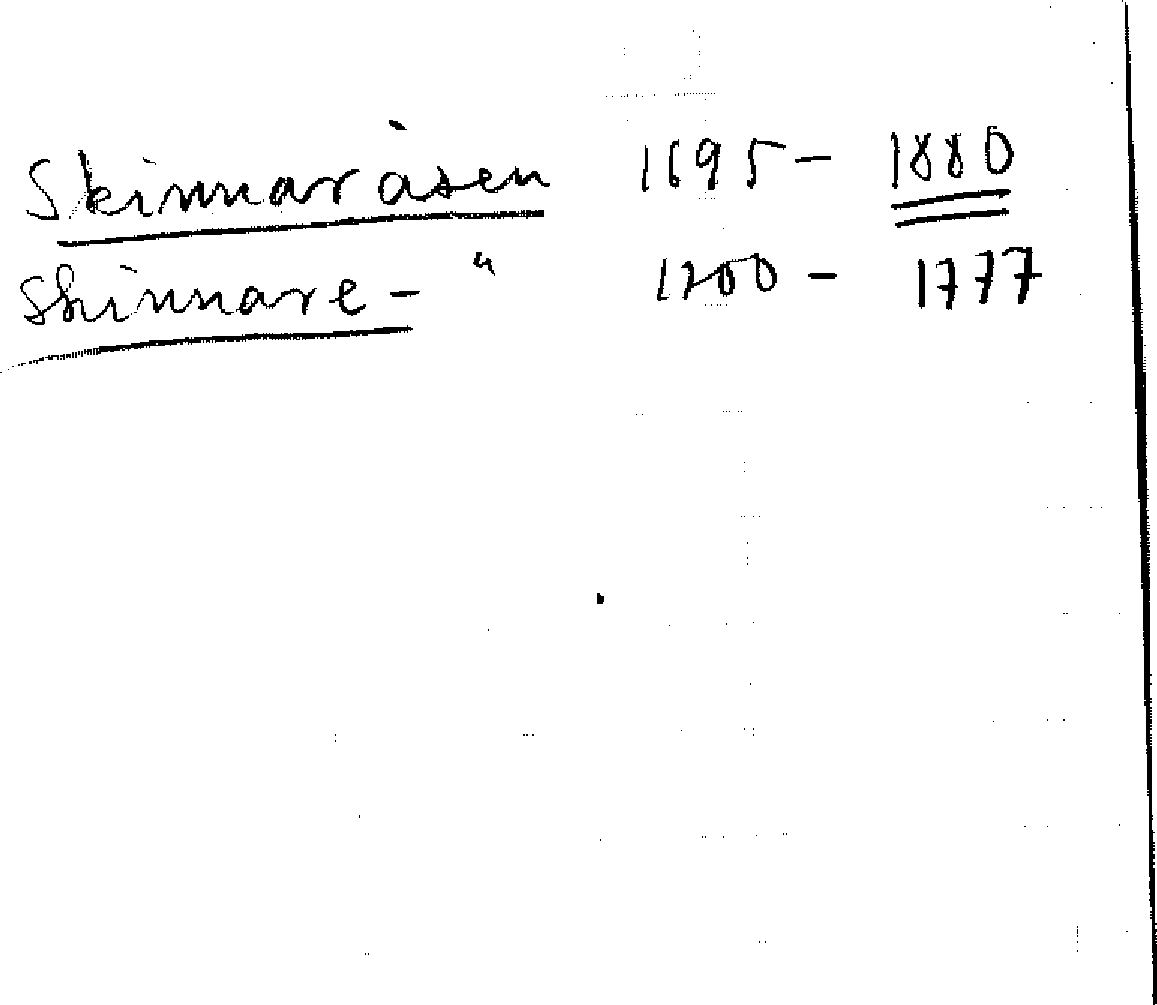 Skinnaråsen 1695 - 1880
Skinnare - " 1700 - 1777